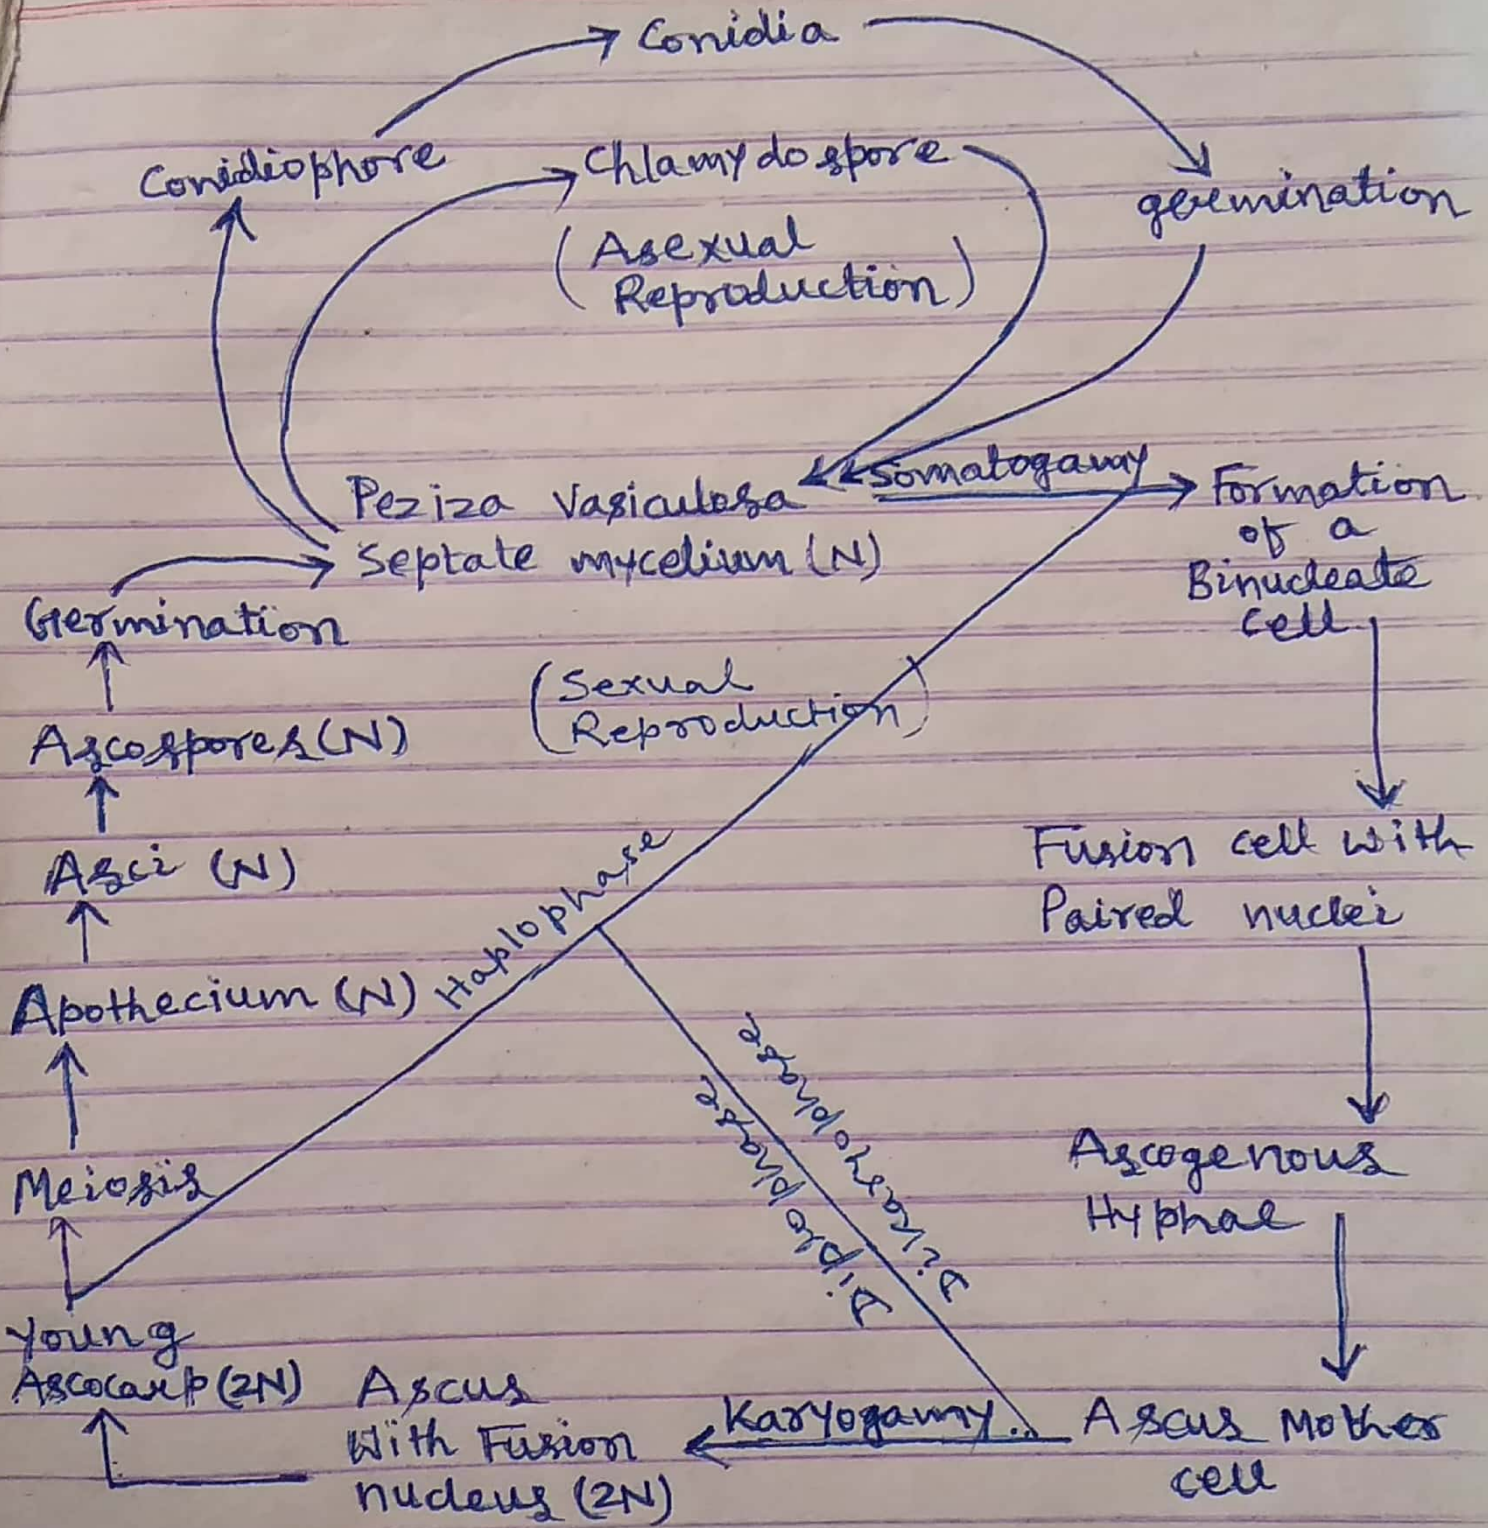 Conidia
Conidiophore
Chlamydospore
germination
(Asexual
Reproduction)
Somatogamy
Peziza Vasiculosa
Septate mycelium (N)
Formation
of a
Binucleate
cell
Germination
(Sexual
Reproduction)
Ascospores(N)
Asci (N)
Haplophase
Fusion cell with
Paired nuclei
Apothecium (N)
Dikaryophase
Diplophase
Meiosis
Ascogenous
Hyphae
Young
Ascocarp(2N)
Ascus
With Fusion
nucleus (2N)
Karyogamy
Ascus Mother
cell